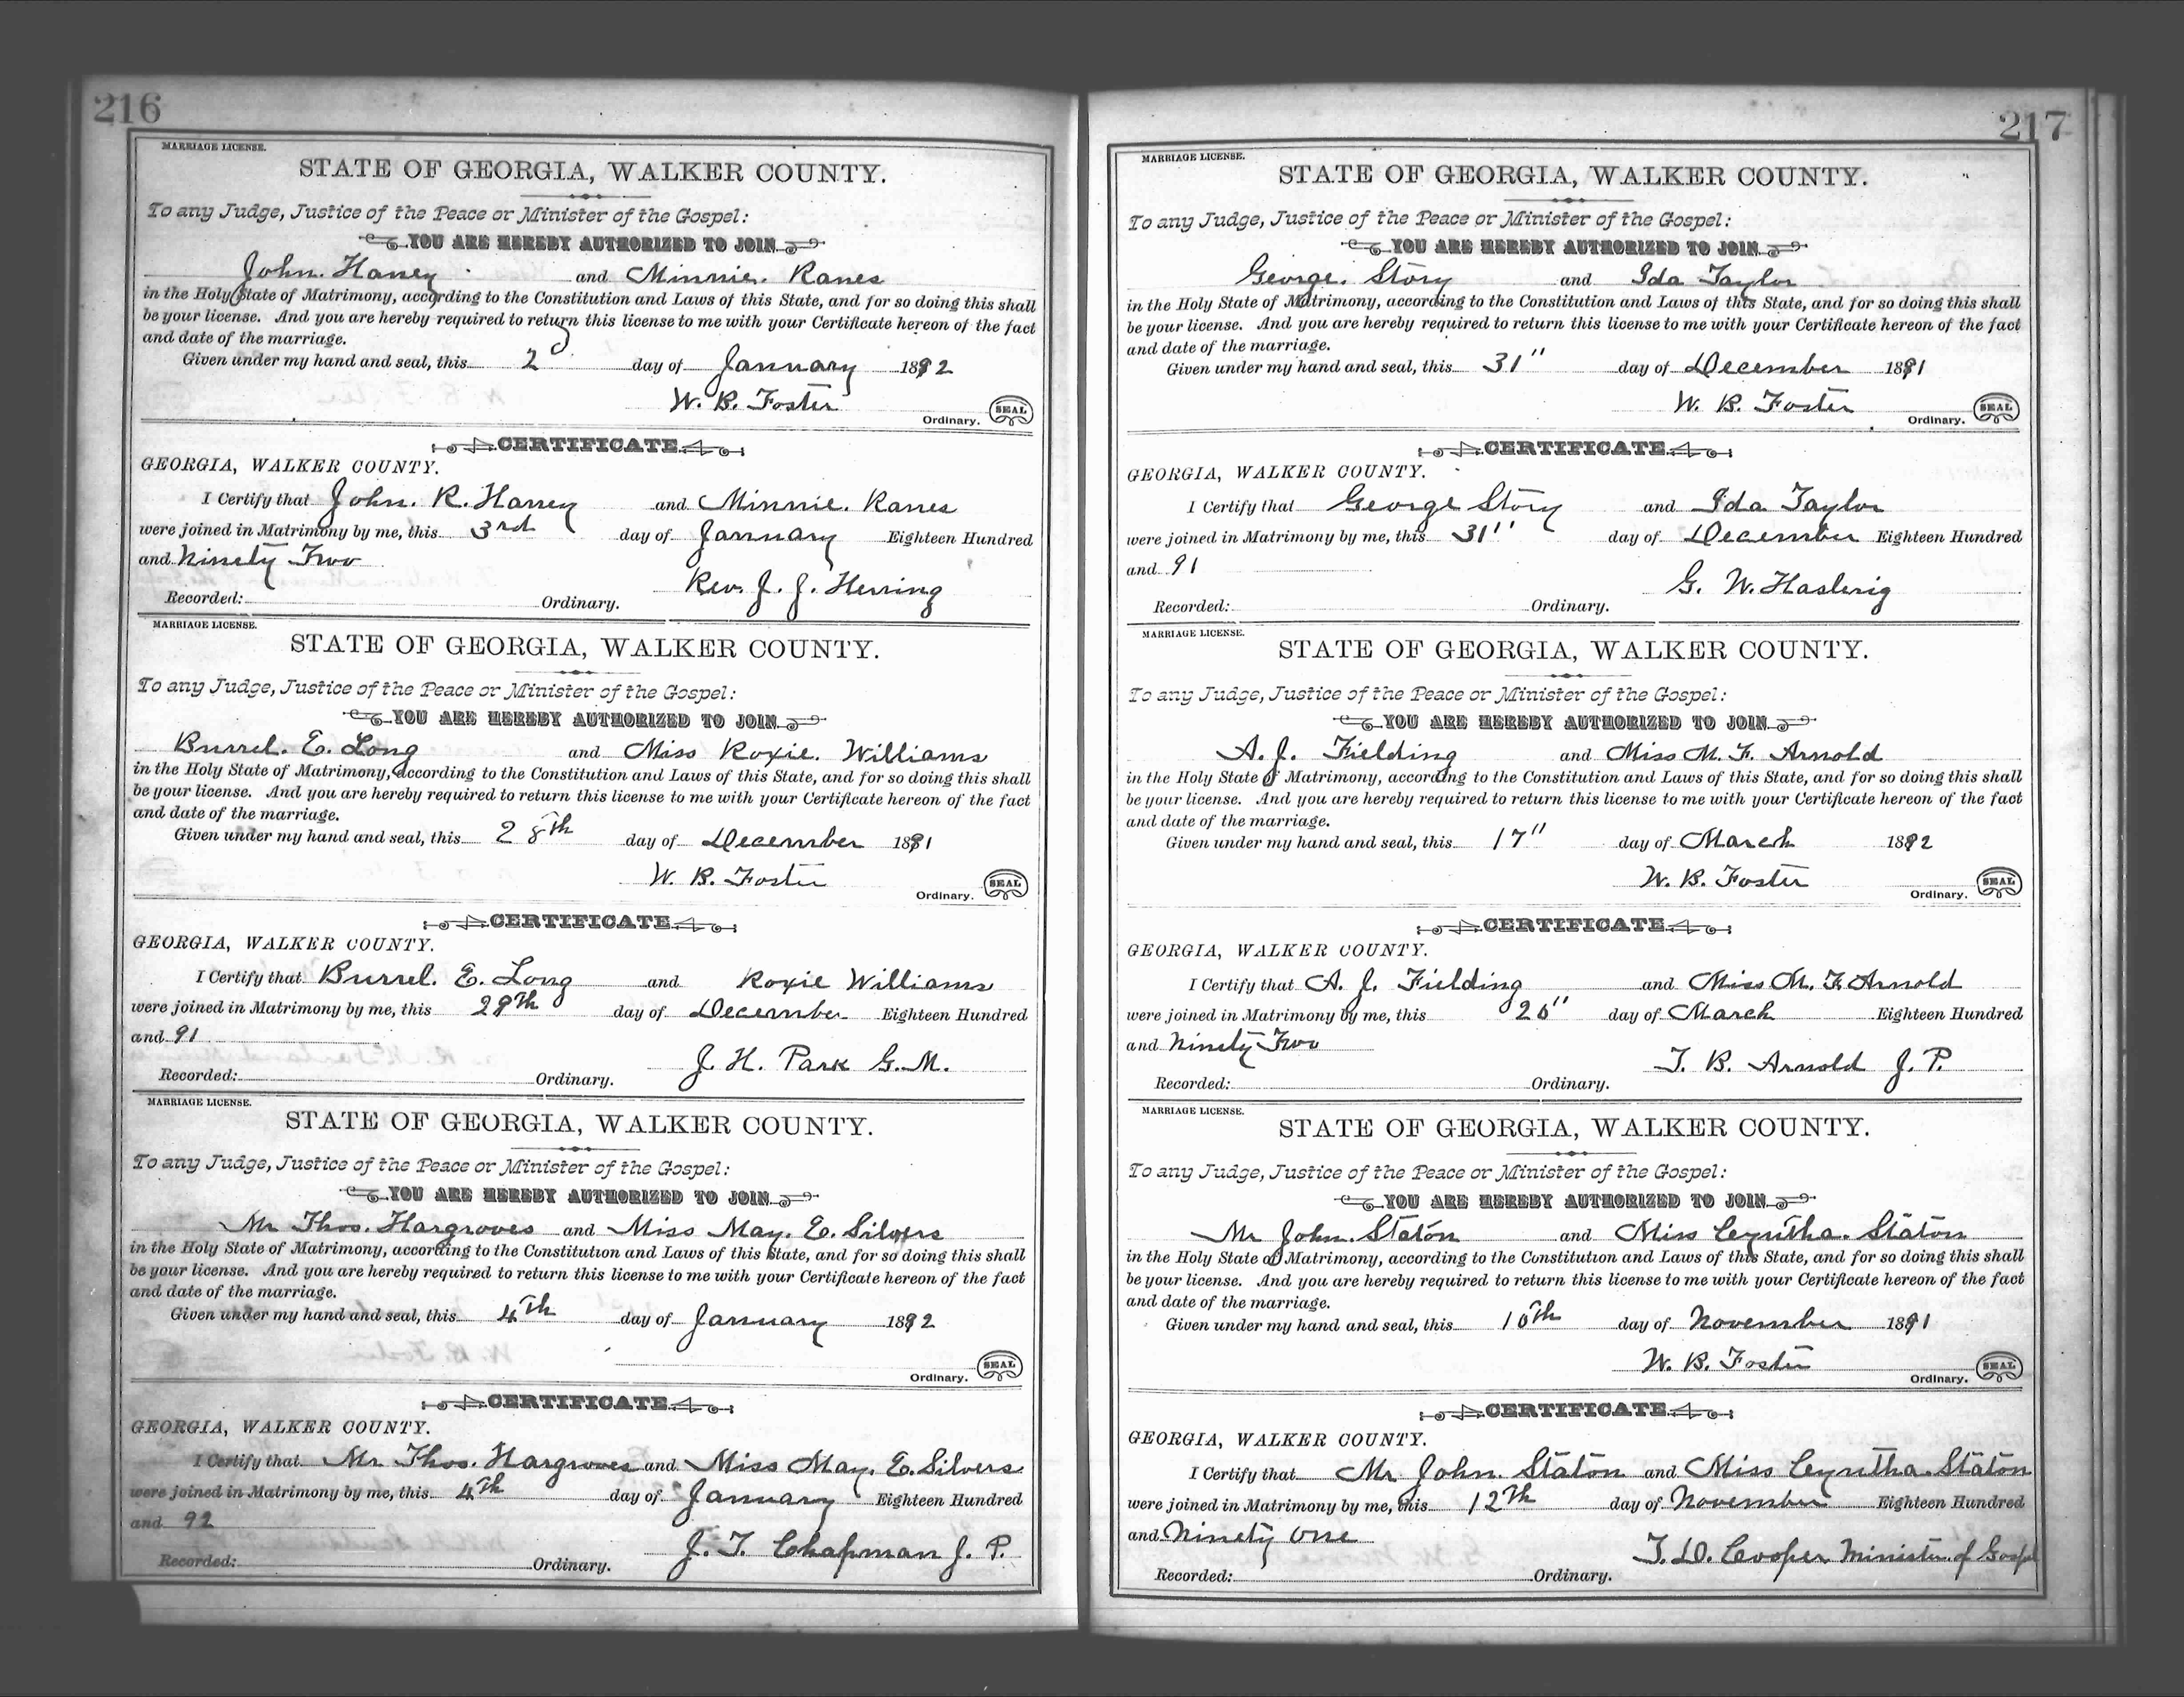 216
MARRIAGE LICENSE.
STATE OF GEORGIA, WALKER COUNTY.
To any Judge, Justice of the Peace or Minister of the Gospel:
YOU ARE HEREBY AUTHORIZED TO JOIN
John. Haney and Minnie. Ranes
in the Holy State of Matrimony, according to the Constitution and Laws of this State, and for so doing this shall
be your license. And you are hereby required to return this license to me with your Certificate hereon of the fact
and date of the marriage.
Given under my hand and seal, this 2d day of January 1892
W. B. Foster
Ordinary. SEAL
CERTIFICATE
GEORGIA, WALKER COUNTY.
I Certify that John. R. Haney and Minnie. Ranes
were joined in Matrimony by me, this 3rd day of January Eighteen Hundred
and Ninety Two
Rev. J. J. Herring
Recorded: Ordinary.
MARRIAGE LICENSE.
STATE OF GEORGIA, WALKER COUNTY.
To any Judge, Justice of the Peace or Minister of the Gospel:
YOU ARE HEREBY AUTHORIZED TO JOIN
Burrel. E. Long and Miss Roxie. Williams
in the Holy State of Matrimony, according to the Constitution and Laws of this State, and for so doing this shall
be your license. And you are hereby required to return this license to me with your Certificate hereon of the fact
and date of the marriage.
Given under my hand and seal, this 28th day of December 1891
W. B. Foster
Ordinary. SEAL
CERTIFICATE
GEORGIA, WALKER COUNTY.
I Certify that Burrel. E. Long and Roxie Williams
were joined in Matrimony by me, this 29th day of December Eighteen Hundred
and 91
J. H. Park G. M.
Recorded: Ordinary.
MARRIAGE LICENSE.
STATE OF GEORGIA, WALKER COUNTY.
To any Judge, Justice of the Peace or Minister of the Gospel:
YOU ARE HEREBY AUTHORIZED TO JOIN
Mr Thos. Hargroves and Miss May. E. Silvers
in the Holy State of Matrimony, according to the Constitution and Laws of this State, and for so doing this shall
be your license. And you are hereby required to return this license to me with your Certificate hereon of the fact
and date of the marriage.
Given under my hand and seal, this 4th day of January 1892
Ordinary. SEAL
CERTIFICATE
GEORGIA, WALKER COUNTY.
I Certify that Mr Thos. Hargroves and Miss May. E. Silvers
were joined in Matrimony by me, this 4th day of January Eighteen Hundred
and 92
J. T. Chapman J. P.
Recorded: Ordinary.
217
MARRIAGE LICENSE.
STATE OF GEORGIA, WALKER COUNTY.
To any Judge, Justice of the Peace or Minister of the Gospel:
YOU ARE HEREBY AUTHORIZED TO JOIN
George. Story and Ida Taylor
in the Holy State of Matrimony, according to the Constitution and Laws of this State, and for so doing this shall
be your license. And you are hereby required to return this license to me with your Certificate hereon of the fact
and date of the marriage.
Given under my hand and seal, this 31" day of December 1891
W. B. Foster
Ordinary. SEAL
CERTIFICATE
GEORGIA, WALKER COUNTY.
I Certify that George Story and Ida Taylor
were joined in Matrimony by me, this 31" day of December Eighteen Hundred
and 91
G. W. Haslerig
Recorded: Ordinary.
MARRIAGE LICENSE.
STATE OF GEORGIA, WALKER COUNTY.
To any Judge, Justice of the Peace or Minister of the Gospel:
YOU ARE HEREBY AUTHORIZED TO JOIN
A. J. Fielding and Miss M. F. Arnold
in the Holy State of Matrimony, according to the Constitution and Laws of this State, and for so doing this shall
be your license. And you are hereby required to return this license to me with your Certificate hereon of the fact
and date of the marriage.
Given under my hand and seal, this 17" day of March 1892
W. B. Foster
Ordinary. SEAL
CERTIFICATE
GEORGIA, WALKER COUNTY.
I Certify that A. J. Fielding and Miss M. F. Arnold
were joined in Matrimony by me, this 20" day of March Eighteen Hundred
and Ninety Two
T. B. Arnold J. P.
Recorded: Ordinary.
MARRIAGE LICENSE.
STATE OF GEORGIA, WALKER COUNTY.
To any Judge, Justice of the Peace or Minister of the Gospel:
YOU ARE HEREBY AUTHORIZED TO JOIN
Mr John. Staton and Miss Cyntha. Staton
in the Holy State of Matrimony, according to the Constitution and Laws of this State, and for so doing this shall
be your license. And you are hereby required to return this license to me with your Certificate hereon of the fact
and date of the marriage.
Given under my hand and seal, this 10th day of November 1891
W. B. Foster
Ordinary. SEAL
CERTIFICATE
GEORGIA, WALKER COUNTY.
I Certify that Mr John. Staton and Miss Cyntha. Staton
were joined in Matrimony by me, this 12th day of November Eighteen Hundred
and Ninety One
T. D. Cooper Minister of Gospel
Recorded: Ordinary.